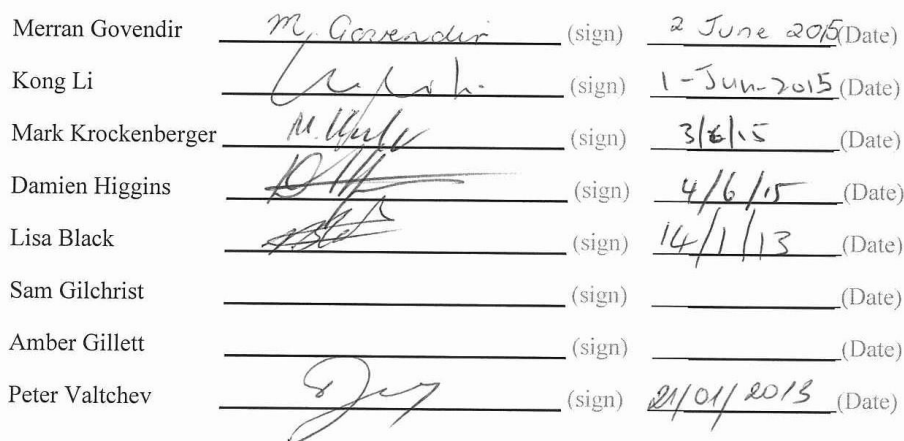 Merran Govendir M. Govendir (sign) 2 June 2015 (Date)
Kong Li (sign) 1-Jun-2015 (Date)
Mark Krockenberger (sign) 3/6/15 (Date)
Damien Higgins (sign) 4/6/15 (Date)
Lisa Black (sign) 14/1/13 (Date)
Sam Gilchrist (sign) (Date)
Amber Gillett (sign) (Date)
Peter Valtchev (sign) 21/01/2013 (Date)